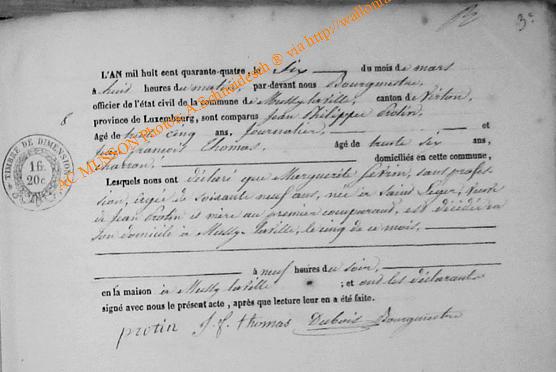 3e
L'AN mil huit cent quarante-quatre, le Six du mois de mars
à huit heures de matin par-devant nous Bourgmestre,
officier de l'état civil de la commune de Mussy-la-ville, canton de Virton,
8
province de Luxembourg, sont comparus Jean Philippe Protin,
Agé de trente cinq ans, journalier, et
François Thomas, Agé de trente six ans,
domiciliés en cette commune,
Lesquels nous ont déclaré que Marguerite, sans profes-
sion, âgée de soixante neuf ans, née à Saint Leger, veuve
de Jean Protin et mère au premier comparant, est décédée en
son domicile à Mussy-la-ville, le cinq de ce mois,
à neuf heures du soir,
en la maison à Mussy-la-ville ; et ont les déclarants
signé avec nous le présent acte, après que lecture leur en a été faite.
protin J. f. thomas Dubois Bourgmestre
TIMBRE DE DIMENSION
16.
20c
AC MUSSON Photos A Schaudesch ® via http://wallonia